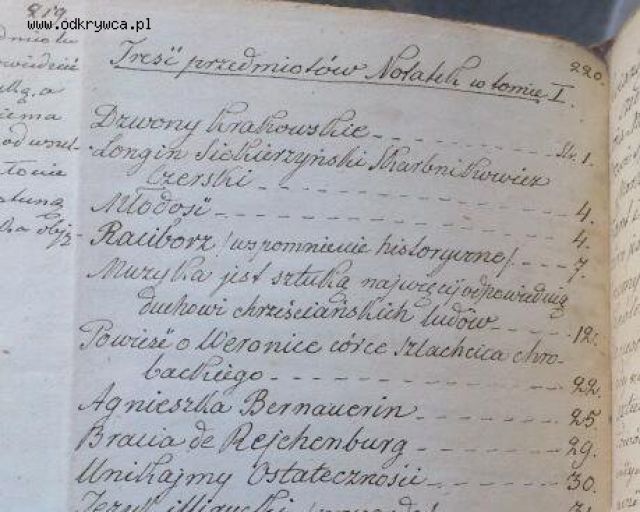 www.odkrywca.pl
219
220.
Treść przedmiotów Notatek w tomie I.
Dzwony Krakowskie - - - - - - - - Str. 1.
Longin Siekierzyński Skarbnikowicz
Czerski - - - - - - - - - - 4.
Młodość - - - - - - - - - - 4.
Raciborz / wspomnienie historyczne / - - - - 7.
Muzyka jest sztuką najwięcej odpowiednią
duchowi chrześciańskich ludów - - - - - 12.
Powieść o Weronice córce szlachcica chro-
backiego - - - - - - - - - 22.
Agnieszka Bernauerin - - - - - - - 25.
Bracia de Rejchenburg - - - - - - - 29.
Unikajmy Ostateczności - - - - - - 30.
Język illirycki